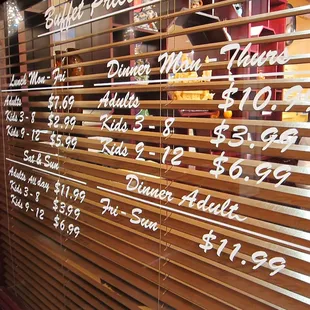 Buffet Price
Lunch Mon - Fri
Adults $7.69
Kids 3 - 8 $2.99
Kids 9 - 12 $5.99
Sat & Sun
Adults All day $11.99
Kids 3 - 8 $3.99
Kids 9 - 12 $6.99
Dinner Mon - Thurs
Adults $10.99
Kids 3 - 8 $3.99
Kids 9 - 12 $6.99
Dinner Adult
Fri - Sun $11.99